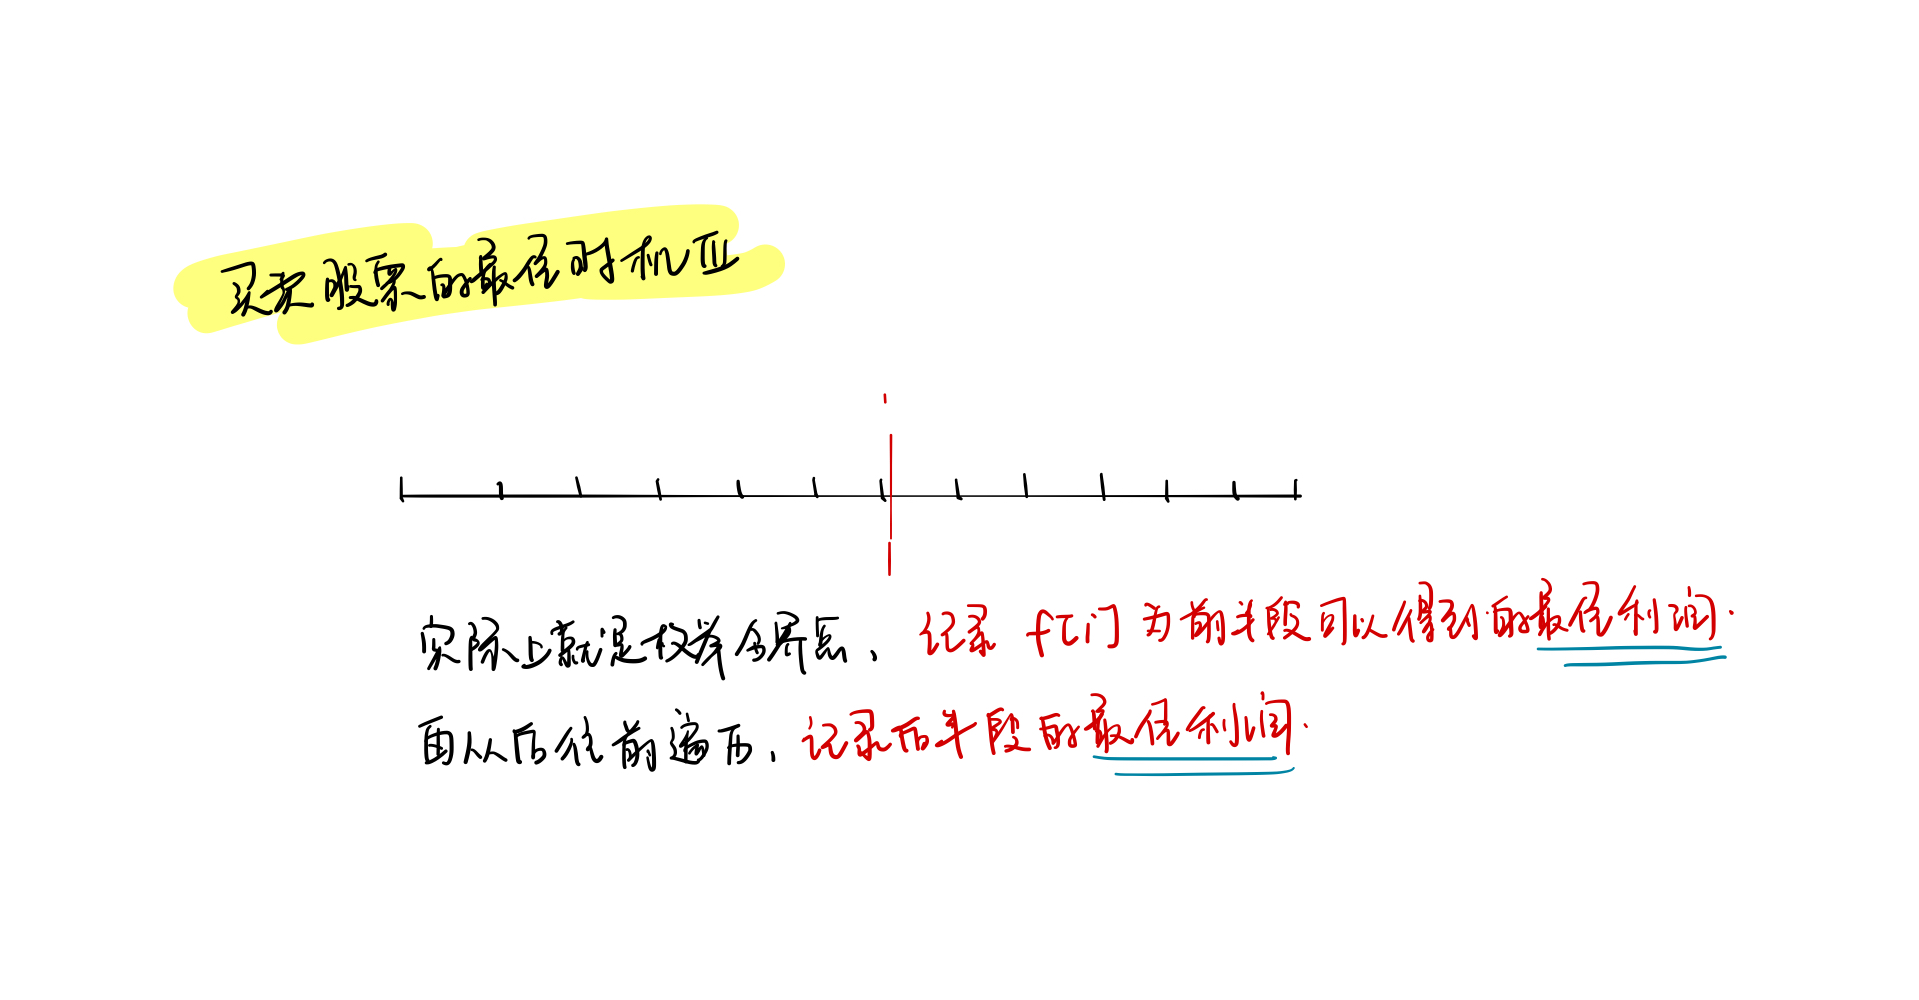 买卖股票的最佳时机III
实际上就是枚举分界点，记录 f[i] 为前半段可以得到的最佳利润.
再从后往前遍历，记录后半段的最佳利润.